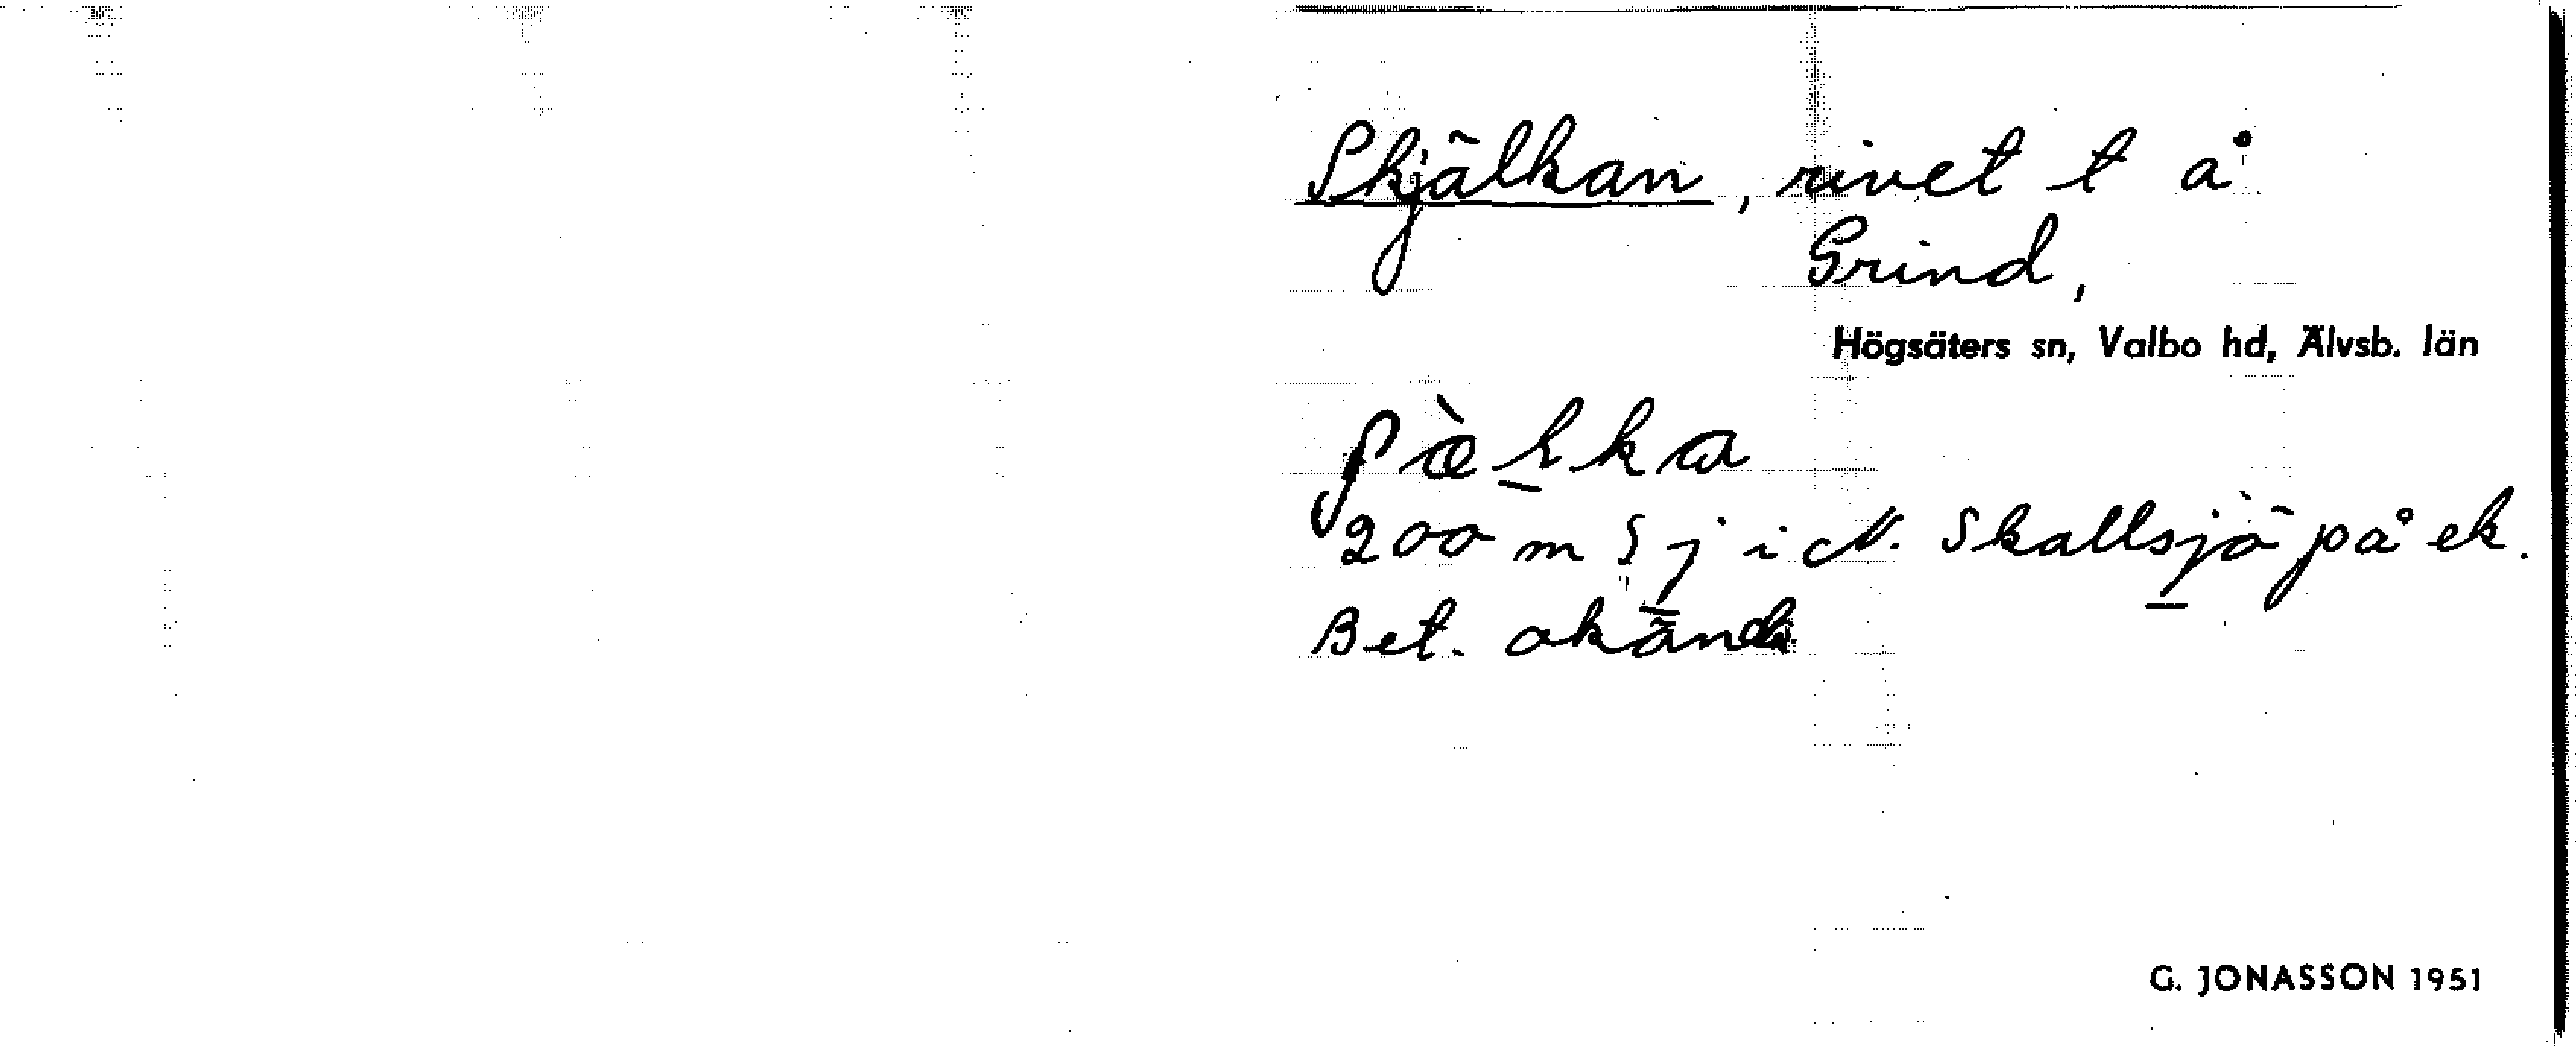 Skjälkan, rivet t å
Grind,
Högsäters sn, Valbo hd, Älvsb. län
200 m S j i N. Skallsjö på ek.
Bet. okänd
G. JONASSON 1951